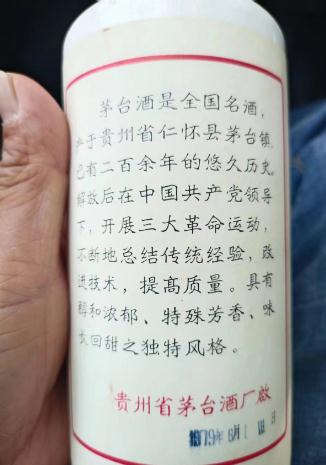 茅台酒是全国名酒，
产于贵州省仁怀县茅台镇，
已有二百余年的悠久历史。
解放后在中国共产党领导
下，开展三大革命运动，
不断地总结传统经验，改
进技术，提高质量。具有
醇和浓郁、特殊芳香、味
长回甜之独特风格。
贵州省茅台酒厂啟
1979年6月1 日